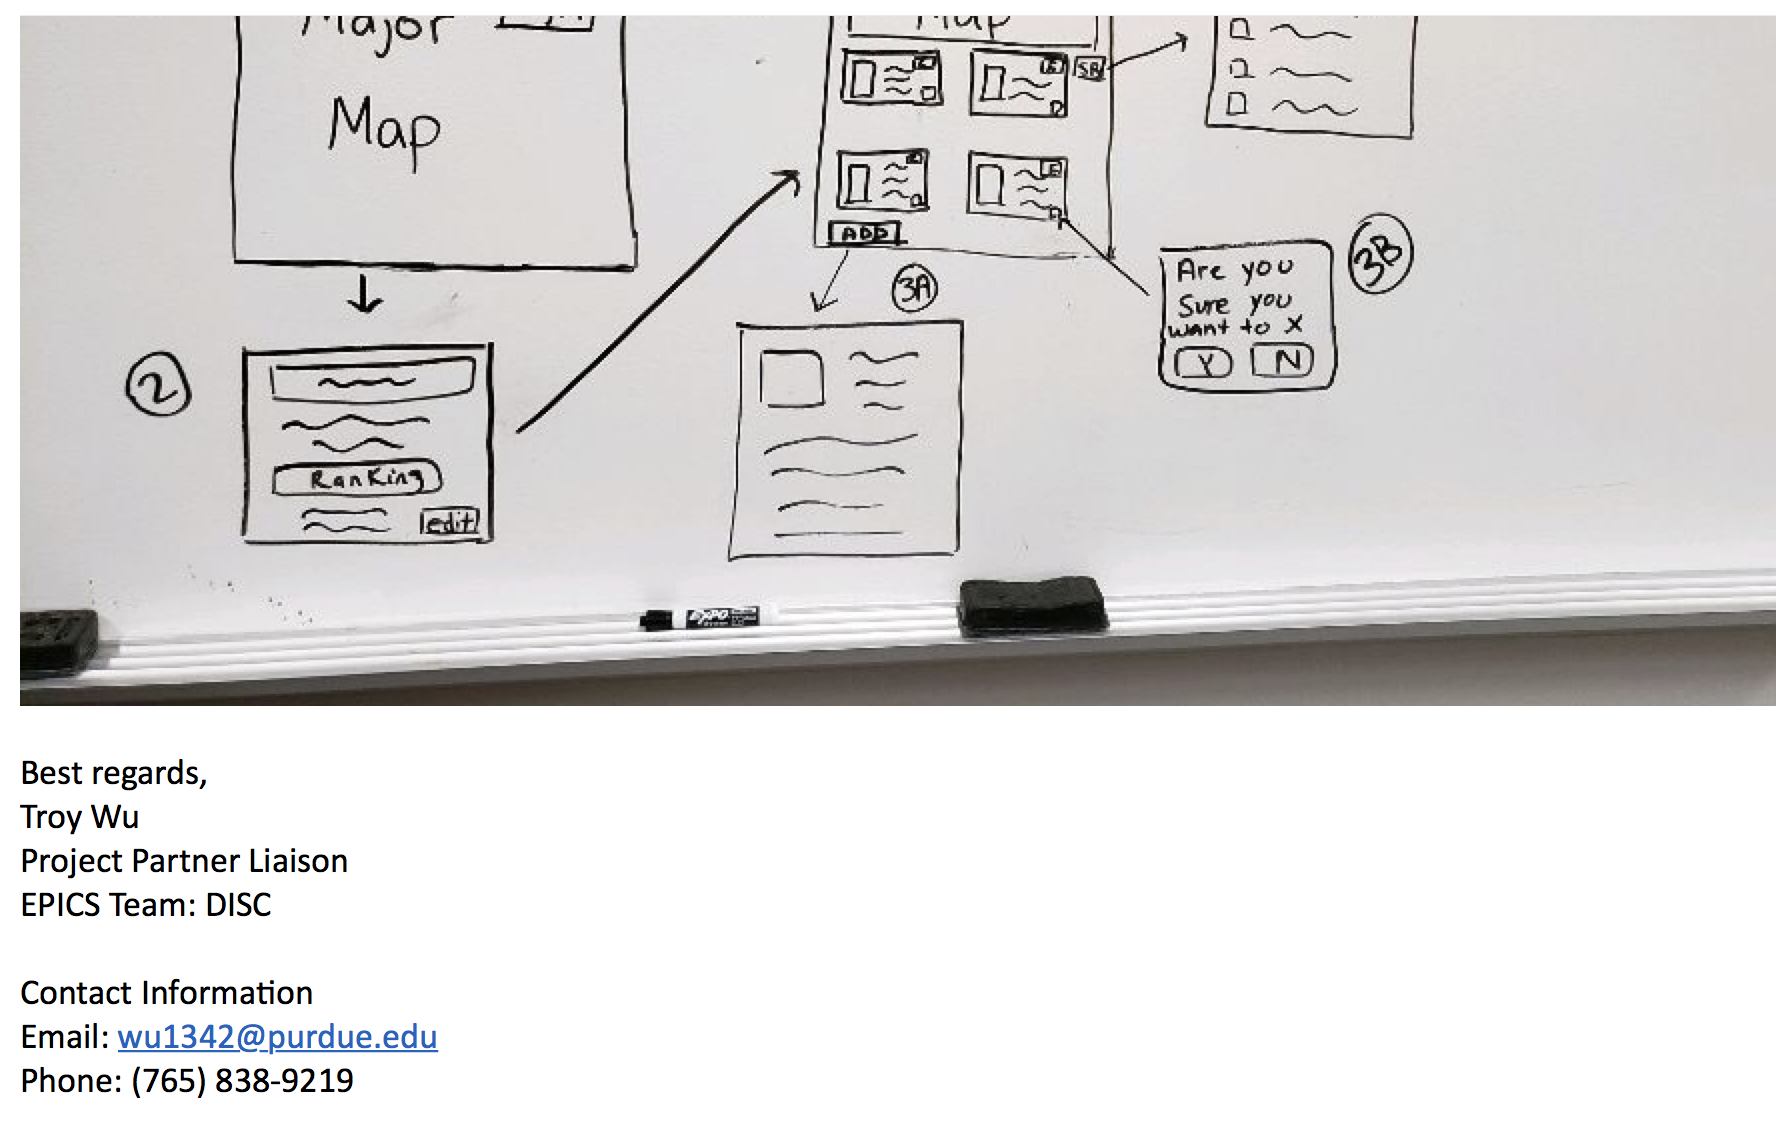 Major
Map
Map
SB
ADD
3A
Are you
Sure you
want to X
Y N
3B
2
Ranking
edit
EXPO
Best regards,
Troy Wu
Project Partner Liaison
EPICS Team: DISC
Contact Information
Email: wu1342@purdue.edu
Phone: (765) 838-9219